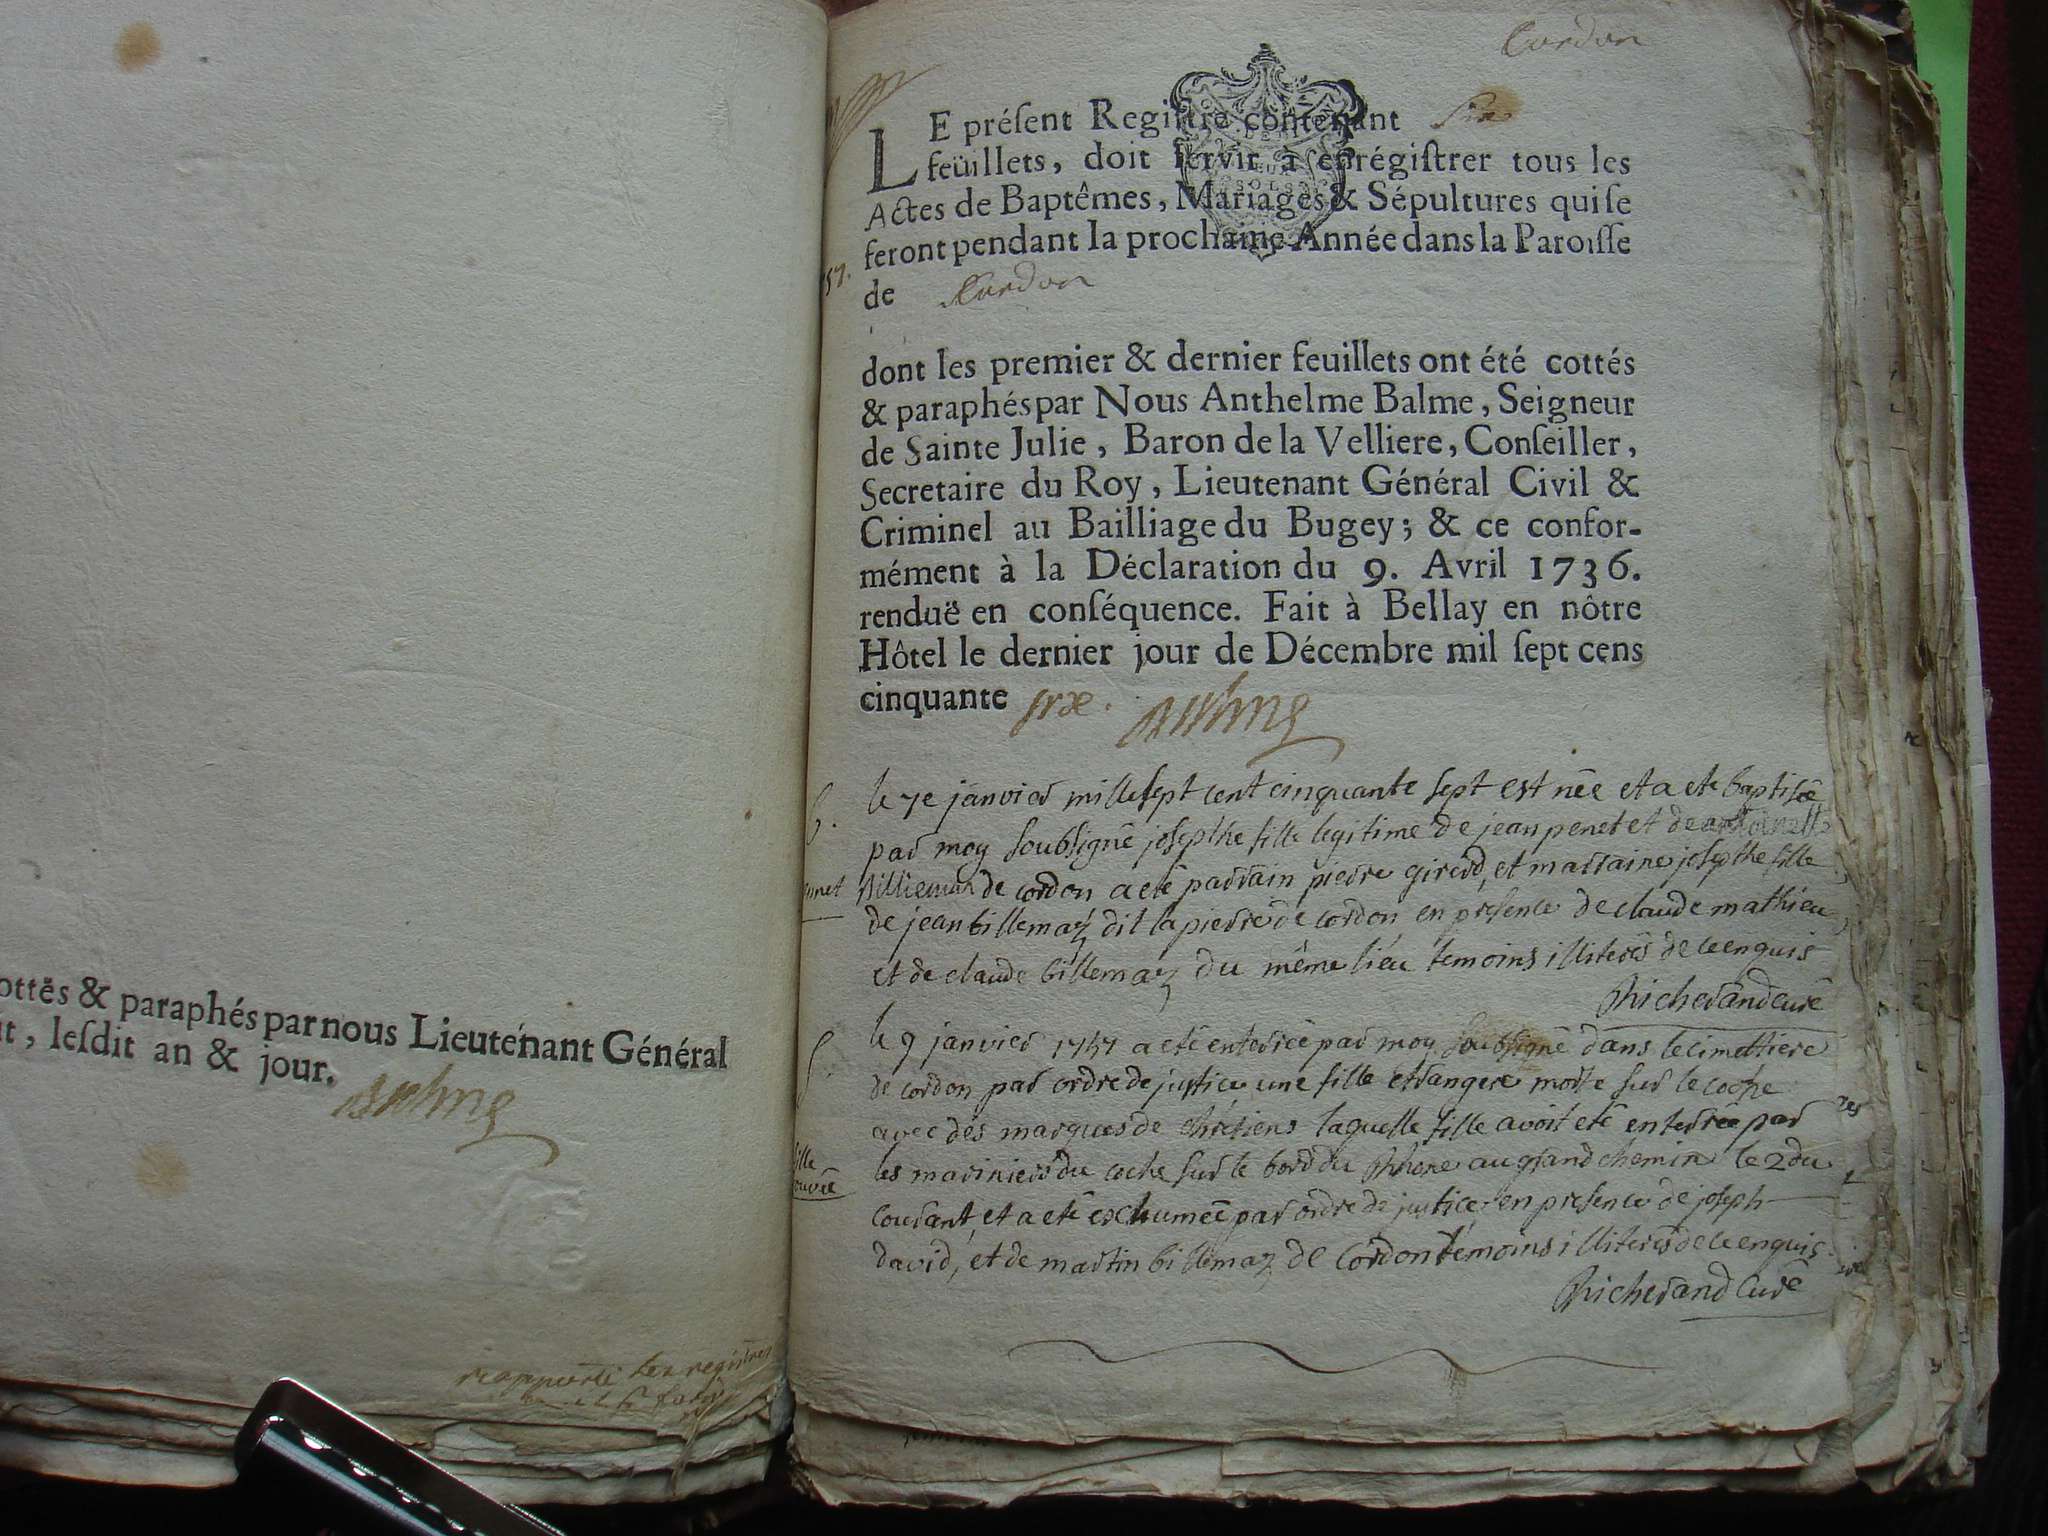 ottés & paraphés par nous Lieutenant Général
it, lesdit an & jour.
Balme
rapporté les registres
Cordon
LE présent Registre contenant six
feüillets, doit servir à enrégistrer tous les
Actes de Baptêmes, Mariages & Sépultures qui se
feront pendant la prochaine Année dans la Paroisse
57.
de Cordon
dont les premier & dernier feuillets ont été cottés
& paraphés par Nous Anthelme Balme, Seigneur
de Sainte Julie, Baron de la Velliere, Conseiller,
Secretaire du Roy, Lieutenant Général Civil &
Criminel au Bailliage du Bugey; & ce confor-
mément à la Déclaration du 9. Avril 1736.
renduë en conséquence. Fait à Bellay en nôtre
Hôtel le dernier jour de Décembre mil sept cens
cinquante six. Balme
b. le 7e janvier mille sept cent cinquante sept est née et a eté baptisée
par moy soubsigné josephe fille legitime de jean penet et de antoinette
billiemaz de cordon a eté parrain pierre girerd, et marraine josephe fille
de jean billemaz dit la pierre de cordon en presence de claude mathieu
et de claude billemaz du même lieu temoins illiterés de ce enquis
Richerand curé
S. le 9 janvier 1757 a eté enterrée par moy soubsigné dans le cimettiere
de cordon par ordre de justice une fille etrangere morte sur le coche
avec des marques de chrétiens laquelle fille avoit eté enterrée par
fille
les mariniers du coche sur le bord du Rhone au grand chemin le 2 du
courant, et a eté exhumée par ordre de justice en presence de joseph
david, et de martin billemaz de cordon témoins illiterés de ce enquis
Richerand Curé